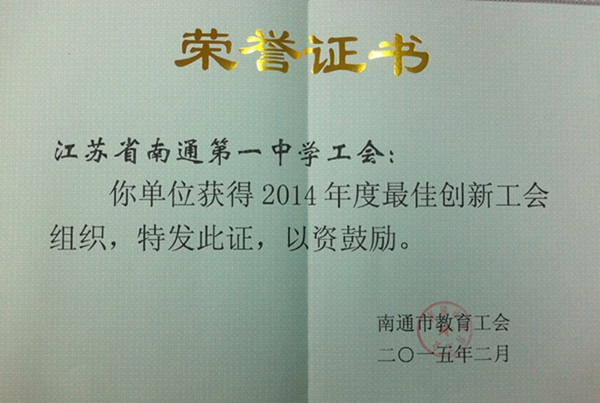 荣誉证书
江苏省南通第一中学工会：
你单位获得2014年度最佳创新工会
组织，特发此证，以资鼓励。
南通市教育工会
二〇一五年二月